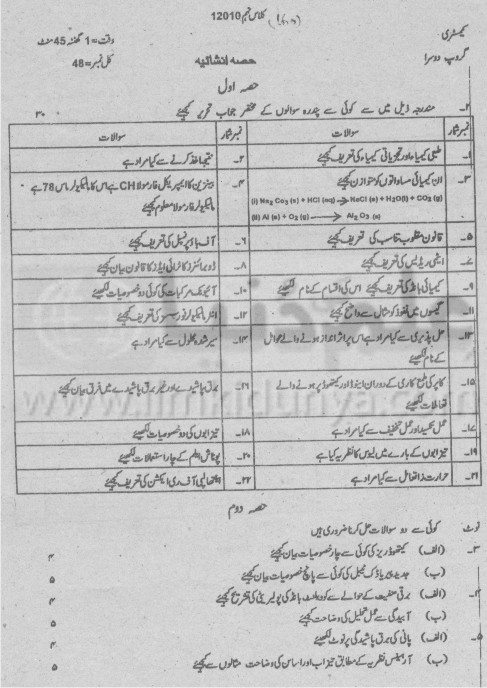 کلاس نہم 12010
کیمسٹری
وقت=1 گھنٹہ 45 منٹ
گروپ دوسرا
حصہ انشائیہ
کل نمبر=48
حصہ اول
۲۔ مندرجہ ذیل میں سے کوئی سے پندرہ سوالوں کے مختصر جواب تحریر کیجیے ۳۰
نمبر شمار سوالات نمبر شمار سوالات
۱۔ طبیعی کیمیاء اور تجزیاتی کیمیاء کی تعریف کیجیے ۲۔ نتیجہ اخذ کرنے سے کیا مراد ہے
۳۔ ان کیمیائی مساواتوں کو متوازن کیجیے ۴۔ بینزین کا ایمپیریکل فارمولا CH ہے اس کا مالیکیولر ماس 78 ہے
(i) Na2 Co3 (s) + HCl (aq) → NaCl (s) + H2O(l) + CO2 (g) مالیکیولر فارمولا معلوم کیجیے
(ii) Al (s) + O2 (g) → Al2 O3 (s)
۵۔ قانون معکوس تناسب کی تعریف کیجیے ۶۔ آف باؤ پرنسپل کی تعریف کیجیے
۷۔ ایٹمی ریڈیس کی تعریف کیجیے ۸۔ ڈوبرائنرز کا ٹرائی ایڈز کا قانون بیان کیجیے
۹۔ کیمیائی بانڈ کی تعریف کیجیے اس کی اقسام کے نام لکھیے ۱۰۔ آئیونک مرکبات کی کوئی دو خصوصیات لکھیے
۱۱۔ گیسوں میں نفوذ کو مثال سے واضح کیجیے ۱۲۔ انٹر مالیکیولر فورسز کی تعریف کیجیے
۱۳۔ حل پذیری سے کیا مراد ہے اس پر اثر انداز ہونے والے عوامل ۱۴۔ سیر شدہ محلول سے کیا مراد ہے
کے نام لکھیے
۱۵۔ کاپر کی ملمع کاری کے دوران اینوڈ اور کیتھوڈ پر ہونے والے ۱۶۔ برق پاشیدے اور غیر برق پاشیدے میں فرق بیان کیجیے
تعاملات لکھیے
۱۷۔ عمل تکسید اور عمل تخفیف سے کیا مراد ہے ۱۸۔ تیزابوں کی دو خصوصیات لکھیے
۱۹۔ تیزابوں کے بارے میں لیوس کا نظریہ کیا ہے ۲۰۔ پوٹاش ایلم کے چار استعمالات لکھیے
۲۱۔ حرارت زا تعامل سے کیا مراد ہے ۲۲۔ اینتھالپی آف ری ایکشن کی تعریف کیجیے
حصہ دوم
نوٹ کوئی سے دو سوالات حل کرنا ضروری ہیں
۳۔ (الف) کیتھوڈ ریز کی کوئی سے چار خصوصیات بیان کیجیے ۴
(ب) جدید پیریاڈک ٹیبل کی کوئی سے پانچ خصوصیات بیان کیجیے ۵
۴۔ (الف) برقی منفیت کے حوالے سے کوویلنٹ بانڈ کی پولیریٹی کی تشریح کیجیے ۴
(ب) آبیدگی سے عمل تحلیل کی وضاحت کیجیے ۵
۵۔ (الف) پانی کی برق پاشیدگی پر نوٹ لکھیے ۴
(ب) آرہینس نظریہ کے مطابق تیزاب اور اساس کی وضاحت مثالوں سے کیجیے ۵